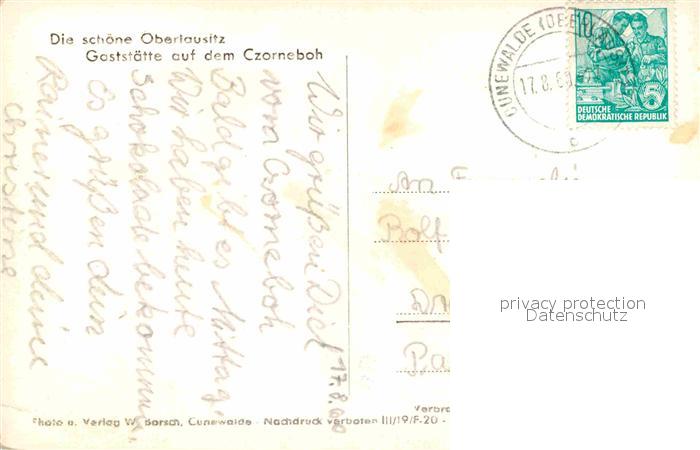 Die schöne Oberlausitz
Gaststätte auf dem Czorneboh
CUNEWALDE (OBERLAUS
17.8.60
10
5
DEUTSCHE
DEMOKRATISCHE REPUBLIK
c
17.8.60
Wir grüßen Dich
vom Czorneboh
Bald gibt es Mittag.
Wir haben heute
Schokolade bekommen.
Es grüßen dein
Rainer und deine
Christine
An
Rolf
privacy protection
Datenschutz
Photo u. Verlag W. Borsch, Cunewalde - Nachdruck verboten III/19/F-20 -